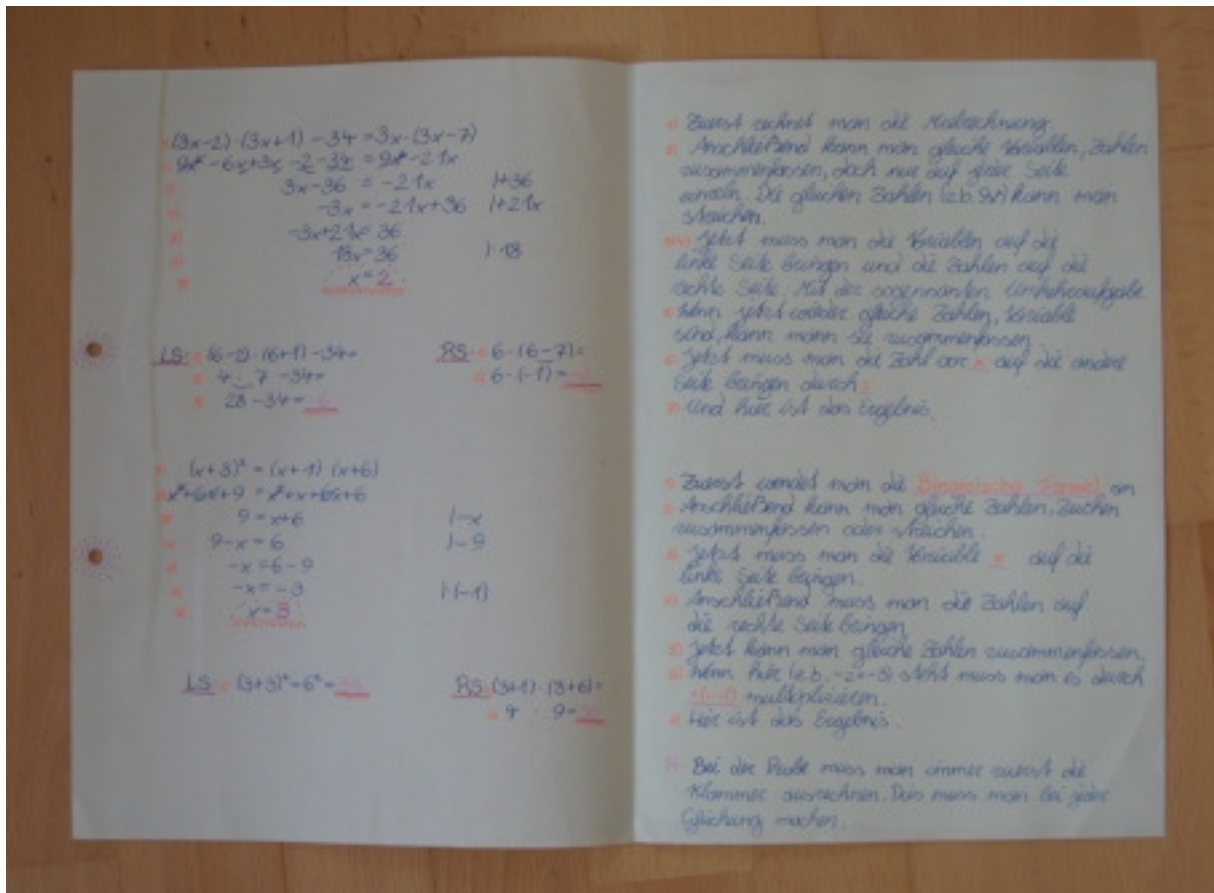 (3x-2)·(3x+1) -34 = 3x·(3x-7)
9x² -6x+3x -2 -34 = 9x² -21x
3x-36 = -21x |+36
-3x = -21x+36 |+21x
-3x+21x = 36
18x = 36 |:18
x = 2
LS: (6-2)·(6+1) -34=
4 · 7 -34=
28 -34=
RS: 6·(6-7)=
6·(-1)=
(x+3)² = (x+1) (x+6)
x²+6x+9 = x²+x+6x+6
9 = x+6 |-x
9-x = 6 |-9
-x = 6-9
-x = -3 |·(-1)
x = 3
LS: (3+3)² = 6² = 36
RS: (3+1)·(3+6)=
4 · 9 =
1) Zuerst rechnet man die Malrechnung.
2) Anschließend kann man gleiche Variablen, Zahlen
zusammenfassen, doch nur auf jeder Seite
einzeln. Die gleichen Zahlen (z.b. 9x²) kann man
streichen.
Jetzt muss man die Variablen auf die
linke Seite bringen und die Zahlen auf die
rechte Seite. Mit der sogenannten Umkehraufgabe.
Wenn jetzt wieder gleiche Zahlen, Variable
sind, kann mann sie zusammenfassen
Jetzt muss man die Zahl vor x auf die andere
Seite bringen durch :
Und hier ist das Ergebnis.
1) Zuerst wendet man die Binomische Formel an
2) Anschließend kann man gleiche Zahlen, Zeichen
zusammenfassen oder streichen.
3) Jetzt muss man die Variable x auf die
linke Seite bringen.
4) Anschließend muss man die Zahlen auf
die rechte Seite bringen
5) Jetzt kann man gleiche Zahlen zusammenfassen.
6) Wenn hier (z.b. -x=-3) steht muss man es durch
·(-1) multiplizieren.
Hier ist das Ergebnis.
Bei der Probe muss man immer zuerst die
Klammer ausrechnen. Das muss man bei jeder
Gleichung machen.